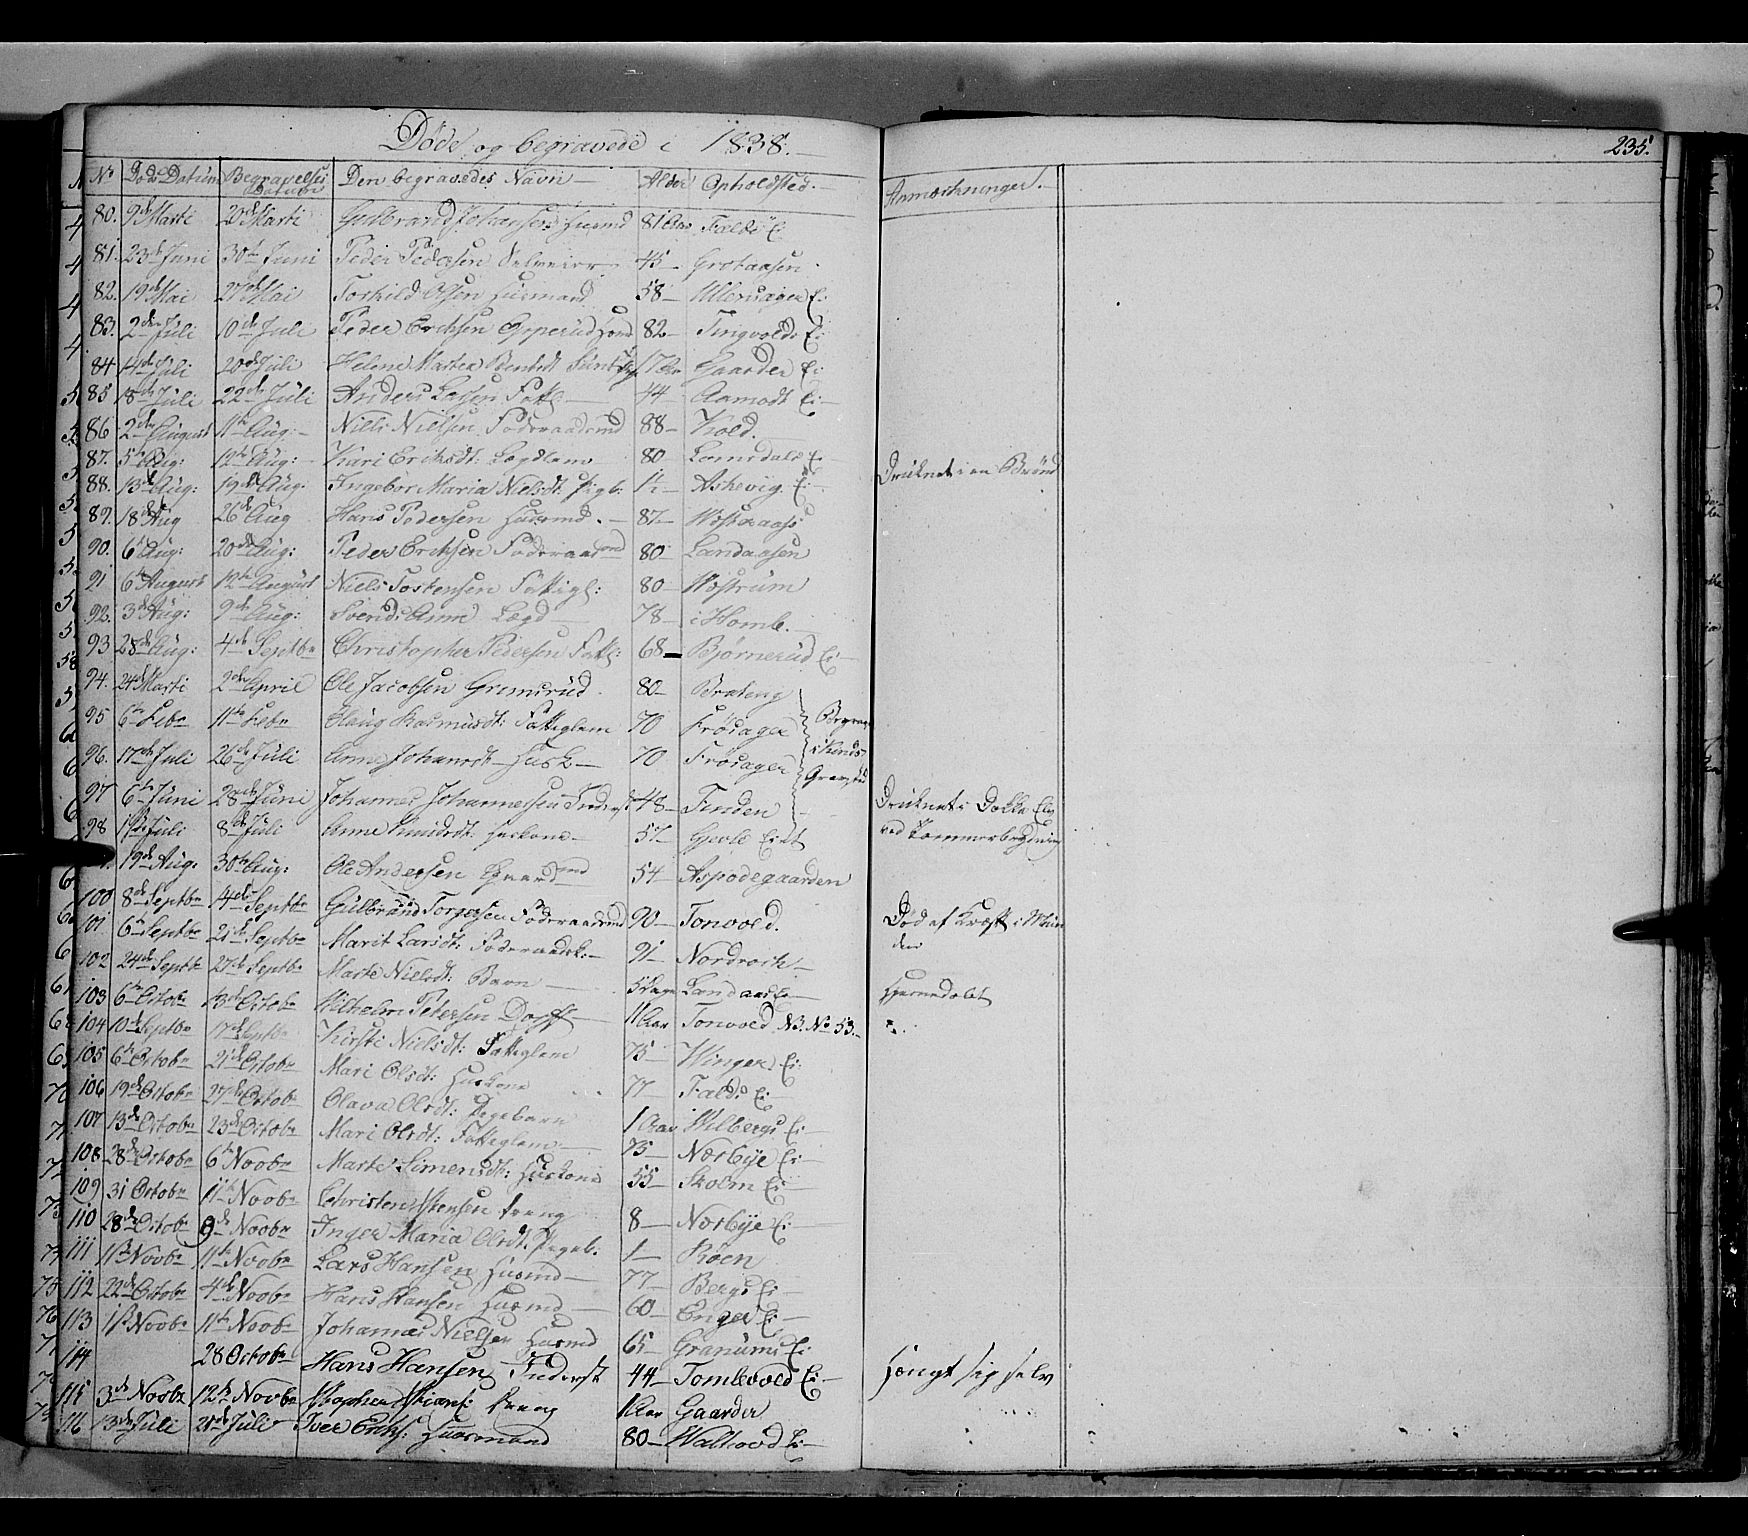 Døde og begravede i 1838.
235.
No Død Datum Begravelses Datum Den begravedes Navn Alder Opholdsted. Anmærkninger.
80. 9de Marti 20de Marti Gulbrand Johansen Husmd 81 Aar Falds E:
81. 23de Juni 30te Juni Peder Pedersen Selveier 45 Grotaasen
82. 19de Mai 27de Mai Torkild Olsen Husmand 58 Ulleruager E:
83. 2den Juli 10de Juli Peder Erichsen Opperud 82 Tingvolds E:
84 14de Juli 20de Juli Helene Marthea Berntsdt 17 Gaarder E:
85 18de Juli 22de Juli Anders Larsen Fattl 44 Aamodt E:
86 2den August 11te Aug: Niels Nielsen Føderaadsmd 88 Kold.
87. 5te Aug: 12te Aug: Kari Eriksdt: Lægdlem 80 Lomsdals E
88. 13de Aug: 19de Aug. Ingebor Maria Nielsdt: Pigb: 1½ Askevig E: Druknet i en Brønd
89. 18de Aug 26de Aug Hans Pedersen Husmd. 87 Westeraas
90. 6te Aug: 20de Aug: Peder Erichsen Føderaadmd 80 Landaasen
91 6te August 12te August Niels Tostensen Fattigl: 80 Westrum
92. 3de Aug: 9de Aug: Svends Anne Lægd 78 i Homb.
93 28de Aug: 4de Septbr Christopher Pedersen Fattl: 68 Bjørnerud E:
94. 24de Marti 2den April Ole Jacobsen Grimsrud 80 Brateng
95 6te Febr 11te Febr Olaug Rasmusdt: Fatteglem 70 Frøsager
96. 17de Juli 26de Juli Anne Johansdt Husk 70 Frøsager
97 6te Juni 28de Juni Johannes Johannessen Inderst 48 Finden Druknet i Dokka Elv
98 1ste Juli 8de Juli Anne Knudsdt: Huskone 57 Gjerle Eiet ved Tømmerbrydning
19de Aug: 30te Aug: Ole Andersen Gaardmd 54 Aspodegaarden
100 8de Septbr 14de Septbr Gulbrand Torgersen Føderaadsmd 90 Tonvold. Død af Kræft i Mun
101 6te Septbr 21de Septbr Marit Larsdt: Føderaadsk: 91 Nordrock den
102 24de Septbr 27de Septbr Marte Nielsdt: Barn 5 Dage Landaas E
103 6te Octobr 13de Octobr Wilhelm Petersen 11 Aar Tonvold NB. No 53.
104 10de Septbr 17de Septbr Kirsti Nielsdt: Fatteglem 75 Winger E:
105 6te Octobr 21de Octobr Mari Olsdt: Huskone 77 Falds E:
106 19de Octobr 27de Octobr Olava Olsdt: Pigebarn 1 Aar Wilbergs E:
107 13de Octobr 23de Octobr Mari Olsdt: Fatteglem 75 Nørbye E:
108 28de Octobr 6te Novbr Marte Simensdt: Huskone 55 Skølm E:
109 31 Octobr 11te Novbr Christen Dreng 8 Nørbye E:
110 28de Octobr 9de Novbr Inger Maria Olsdt. Pigeb. 1 Røen
111 1ste Novbr 11te Novbr Lars Hansen Husmd 77 Bergs E:
112 22de Octobr 4de Novbr Hans Hansen Husmd 60 Enger E:
113 1ste Novbr 11te Novbr Johannes Nielsen Husmd 65 Granums E:
114 28 Octobr Hans Hansen Inderst 44 Tomlevold E: Hængt sig selv
115 3de Novbr 12te Novbr Dreng 1 Aar Gaarder
116 13de Juli 21de Juli Iver Erichs: Husmand 80 E: